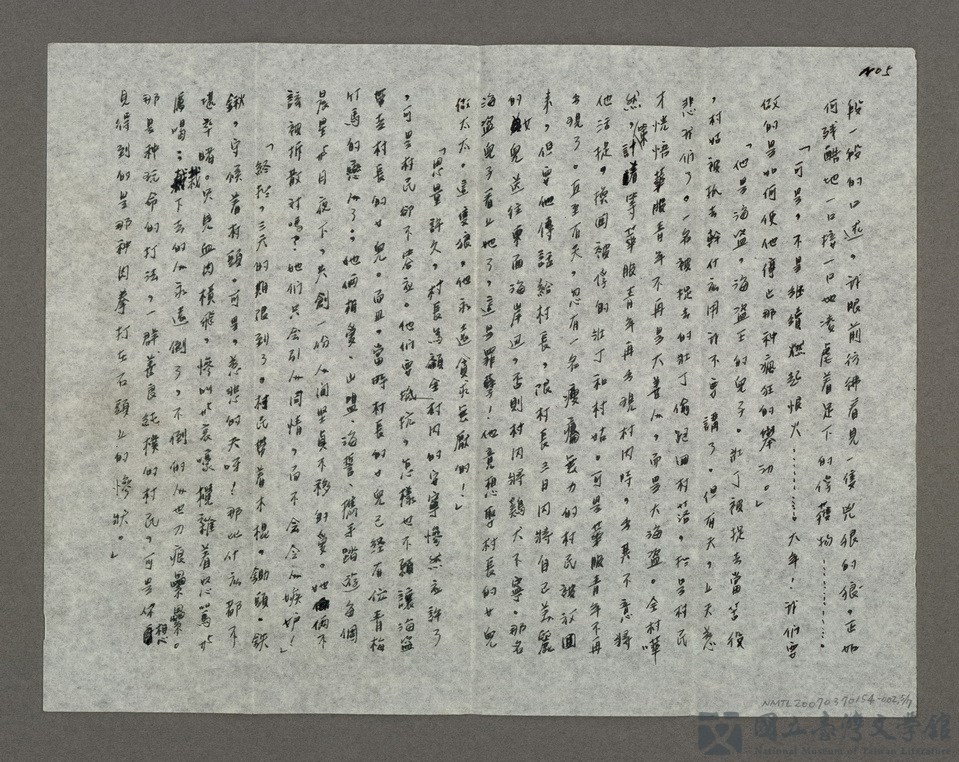 NO5
段一段的口述，我眼前彷彿看見一隻兇狠的狼。正如
何殘酷地一口接一口地凌虐着足下的俘獲物…………。
「可是，不是繼續燃起恨火…………。大年！我们要
做的是如何使他停止那种瘋狂的舉动。」
「他是海盜，海盜王的兒子。壯丁被捉去當苦役
，村姑被抓去幹什么用我不要講了。但有天，上天惹
悲我们了。一名被捉去的壯丁偷跑回村莊，於是村民
才恍悟華服青年不再是大善人，而是大海盜。全村嘩
然，計謀等華服青年再出現村內時，出其不意將
他活捉，換回被俘的壯丁和村姑。可是華服青年不再
出現了。直至有天，忽有一名瘦癟無力的村民被放回
來，但要他傳話給村長，限村長三日內將自己美麗
的女兒送往東面海岸边，否則村內將鷄犬不寧。那名
海盜兒子看上她了，這是罪孽！他竟想娶村長的女兒
做太太。這隻狼。他永遠貪求無厭的！」
「思量許久，村長為顧全村內的安寧慘然應許了
，可是村民卻不答应。他们要抵抗，怎樣也不願讓海盜
帶走村長的女兒。而且，當時村長的女兒已経有位青梅
竹馬的戀人了；他倆相愛、山盟、海誓、攜手踏遊每個
晨星與月夜下，共創一份人间堅真不移的愛。她倆不
該被拆散对嗎？她们只会引人同情，而不会令人嫉妒！」
「終於，三天的期限到了。村民帶着木棍，鋤頭，鉄
鍬，守候着村頭。可是，惹悲的天呀！那比什么都不
堪卒睹。只見血肉橫飛，慘叫與哀嚎攪雜着怒罵與
厲喝；栽下去的人永遠倒了，不倒的人也刀痕纍纍。
那是种玩命的打法，一群善良純樸的村民，可是你想
見得到的是那种肉拳打在石頭上的慘狀。」
NMTL20070370154-002,5/7
國立臺灣文學館
National Museum of Taiwan Literature